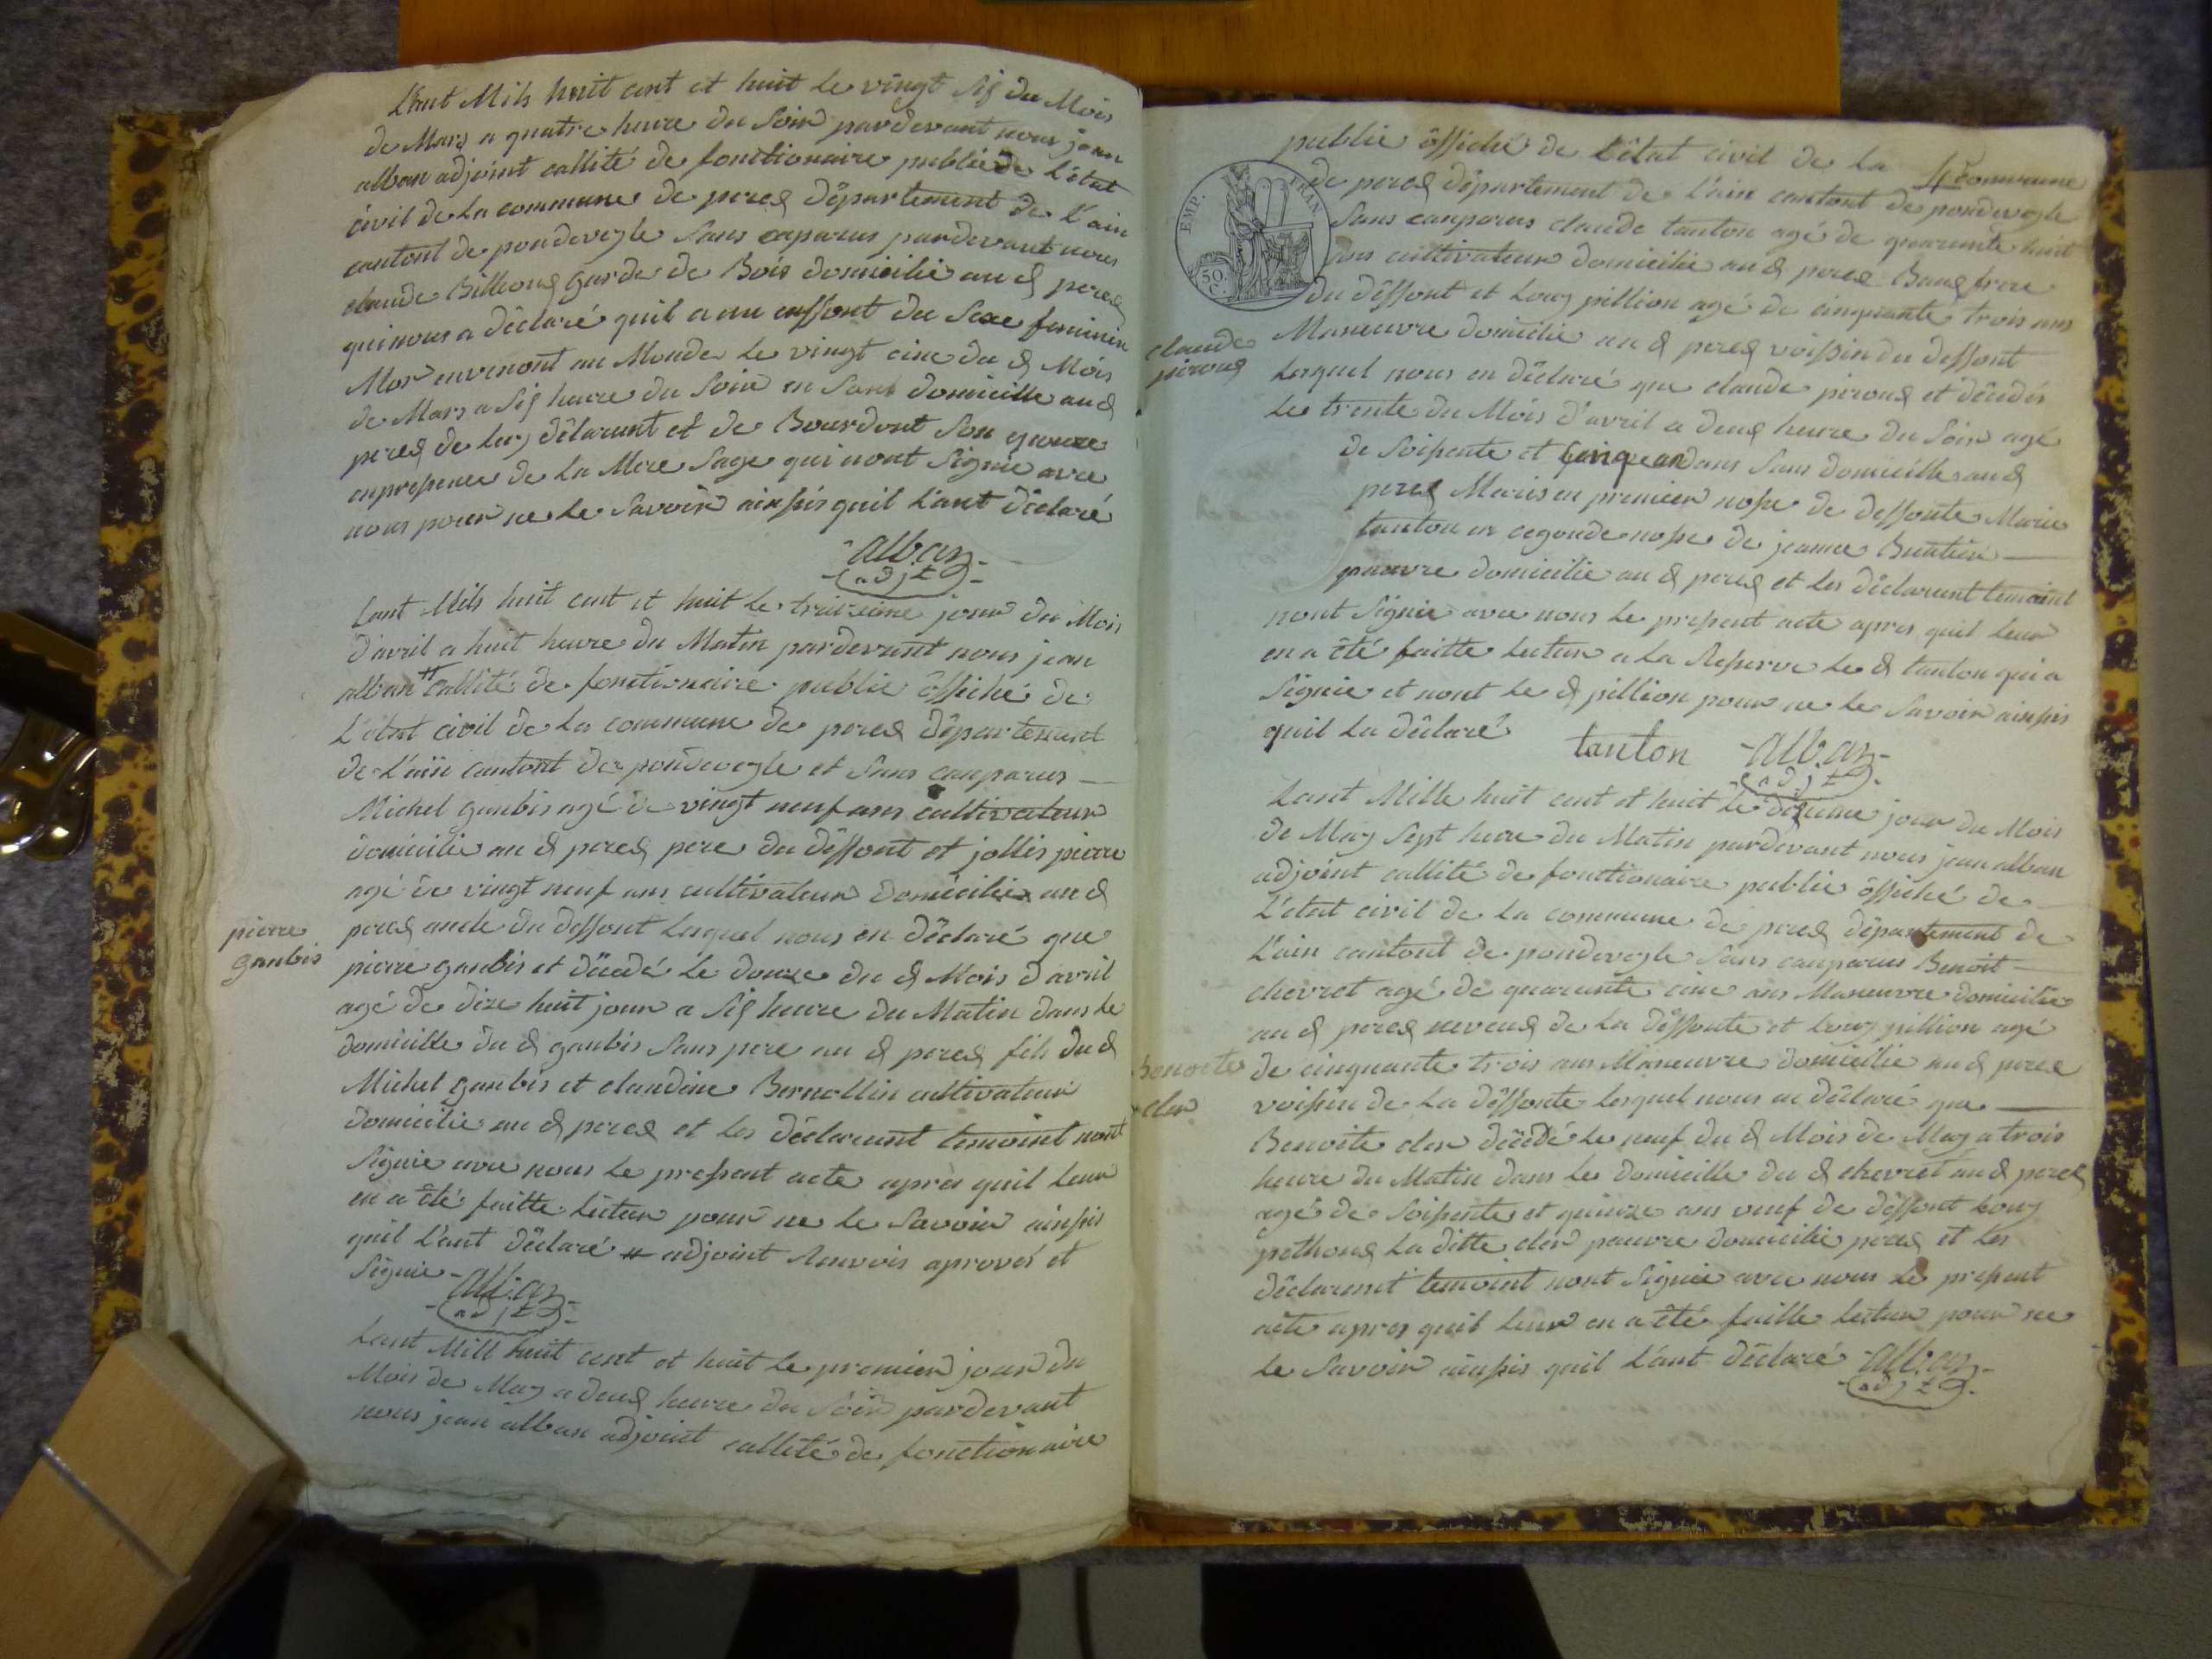 L'ant Mils huit cent et huit le vingt sis du Mois
de Mars a quatre heure du soir pardevant nous jean
alban adjoint callité de fonctionaire publie de L'état
civil de la commune de perex département de L'ain
cantont de pondevegle sans caparus pardevant nous
claude Billoud garde de Bois domicilié au d perex
qui nous a déclaré quil a eu enffont du sexe feminien
Mor envenont au Monde le vingt cinc du d Mois
de Mars a sis heure du soir en sont domicille au d
perex de luy déclarant et de Bourdont son
enpressence de la Mere sage qui nont signie avec
nous pour ne le savoir ainssis quil L'ant déclaré
alban
adjt
Lant Mils huit cent et huit le treizieme jour du Mois
d'avril a huit heure du Matin pardevant nous jean
alban # callité de fonctionaire publie offiché de
L'état civil de la commune de perex département
de L'ain cantont de pondevegle et sans canparus
Michel gaubis agé de vingt neuf ans cultivateur
domicilie au d perex pere du deffont et jollis pierre
agé de vingt neuf ans cultivateur domicilie au d
perex oncle du deffont lesquel nous en déclaré que
pierre gaubis et décédé le douze du d Mois d'avril
agé de dize huit jour a sis heure du Matin dans le
domicille du d gaubis sans pere au d perex fils du d
Michel gaubis et claudine Bernollin cultivateur
domicilie au d perex et les déclarant temoint nont
signie avec nous le pressent acte après quil leur
en a été faitte lecteur pour ne le savoir ainssis
quil L'ant déclaré # adjoint renvois aprovés et
signie
alban
adjt
pierre
gaubis
Lant Mill huit cent et huit le premier jour du
Mois de May a deux heure du soir pardevant
nous jean alban adjoint callité de fonctionaire
publie offiché de L'état civil de la commune
de perex département de L'ain cantont de pondevegle
sans canparus claude tanton agé de quarante huit
ans cultivateur domicilie au d perex Baux frere
du deffont et Louy pillion agé de cinquante trois ans
Maneuvre domicilie au d perex voissin du deffont
lesquel nous en déclaré que claude piroud et décédés
le trente du Mois d'avril a deux heure du soir agé
de soissente et ans sans domicille au d
perex Maris en premier nosse de deffonte Marie
tanton en cegonde nosse de jeanne
pauvre domicilie au d perex et les déclarant temoint
nont signie avec nous le pressent acte apres quil leur
en a été faitte lecteur a la resserve le d tanton qui a
signie et nont le d pillion pour ne le savoir ainssis
quil la déclaré
tanton alban
adjt
claude
piroud
EMP. FRAN
50 C.
Lant Mille huit cent et huit le dizieme jour du Mois
de May sept heure du Matin pardevant nous jean alban
adjoint callité de fonctionaire publie offiché de
L'état civil de la commune de perex département de
L'ain cantont de pondevegle sans canparus Benoit
chevret agé de quarante cinc ans Maneuvre domicilie
au d perex neveux de la deffonte et Louy pillion agé
de cinquante trois ans Maneuvre domicilie au d perex
voissin de la deffonte lesquel nous en déclaré que
Benoite cler décédé le neuf du d Mois de May a trois
heure du Matin dans le domicille du d chevret au d perex
agé de soissente et quinze ans veuf de deffont Louy
pethoux la ditte cler pauvre domicilie perex et les
déclarent temoint nont signie avec nous le pressent
acte apres quil leur en a été faitte lecteur pour ne
le savoir ainssis quil L'ant déclaré alban
adjt
benoite
cler